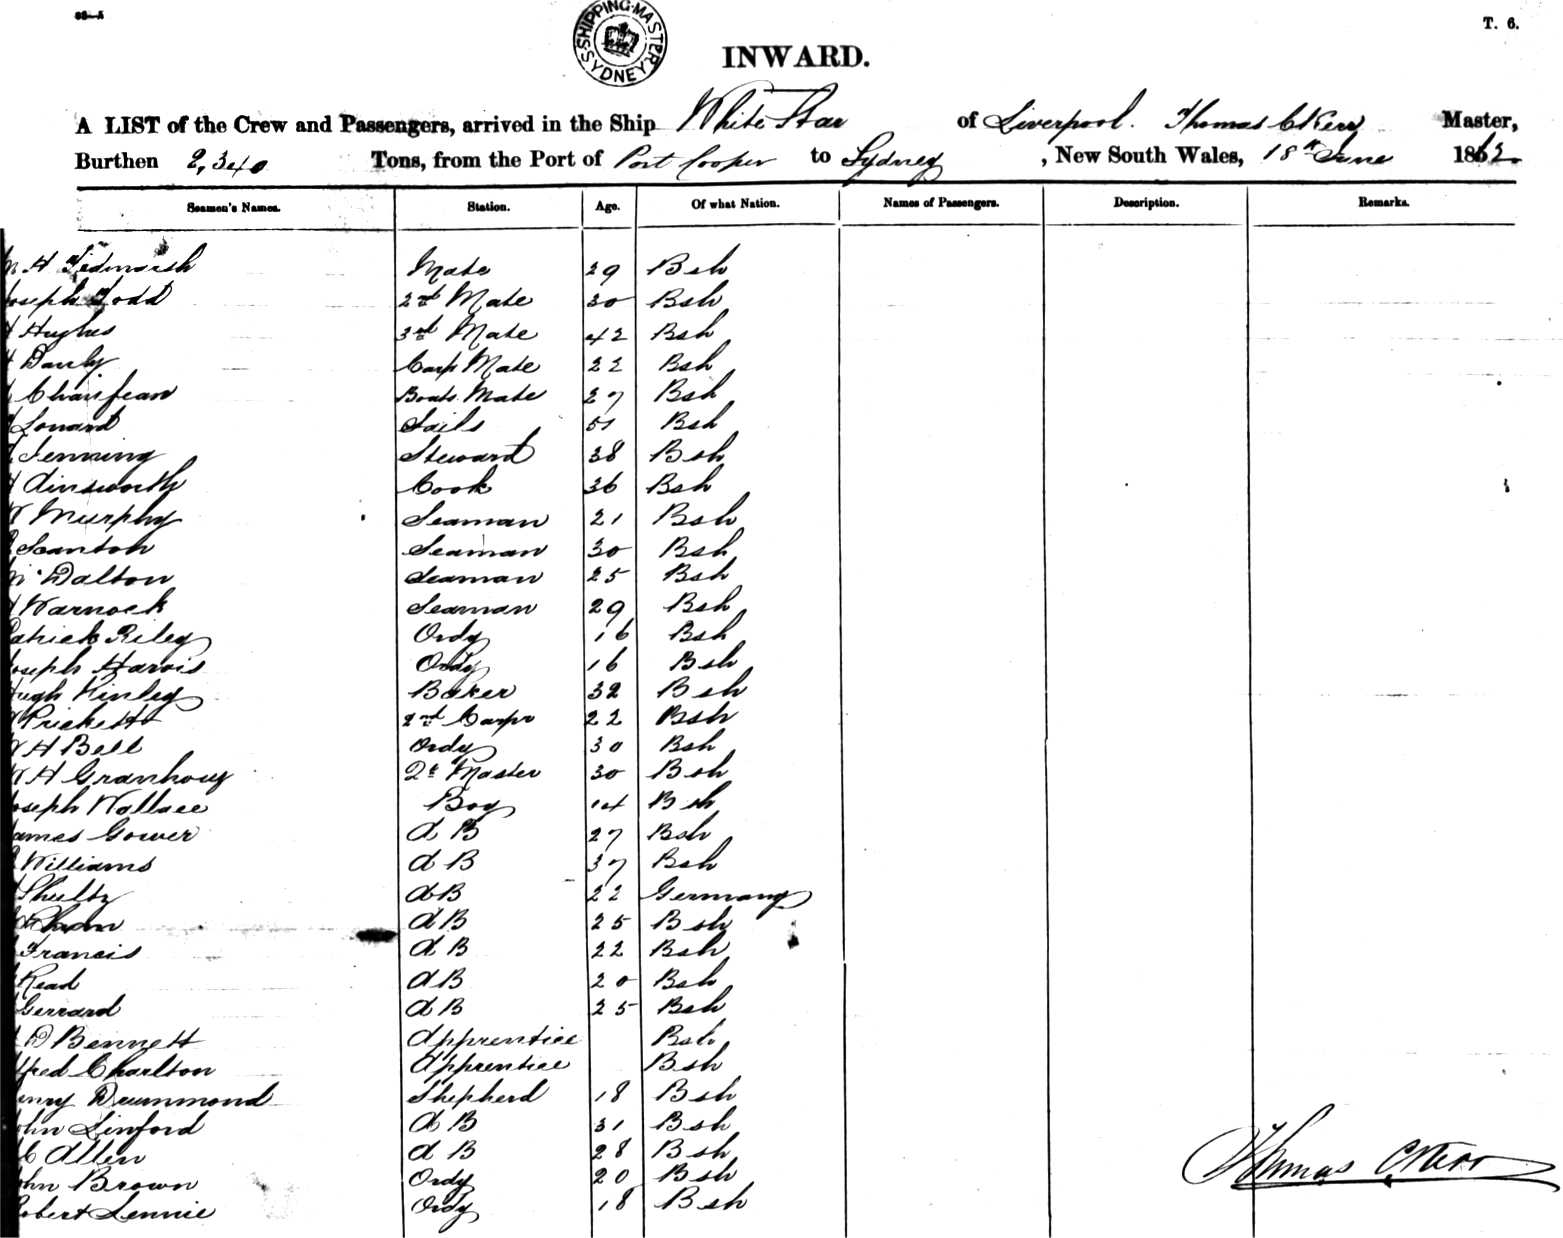 SHIPPING MASTER SYDNEY
T. 6.
INWARD.
A LIST of the Crew and Passengers, arrived in the Ship White Star of Liverpool. Thomas C Kerr Master,
Burthen 2,340 Tons, from the Port of Port Cooper to Sydney, New South Wales, 18th June 1862
Seamen's Names. Station. Age. Of what Nation. Names of Passengers. Description. Remarks.
H Mate 29 Bsh
Joseph Todd 2nd Mate 30 Bsh
Hughes 3rd Mate 42 Bsh
Carp Mate 22 Bsh
Boats. Mate 27 Bsh
Lonard Sails 51 Bsh
Jenning Steward 38 Bsh
Ainsworth Cook 36 Bsh
Murphy Seaman 21 Bsh
Scanton Seaman 30 Bsh
Dalton Seaman 25 Bsh
Warnock Seaman 29 Bsh
Patrick Riley Ordy 16 Bsh
Joseph Harvis Ordy 16 Bsh
Hugh Kinley Baker 32 Bsh
Prickett 2nd Carpr 22 Bsh
H Bell Ordy 30 Bsh
H 2r Master 30 Bsh
Joseph Wallace Boy 14 Bsh
James Gower A B 27 Bsh
Williams A B 37 Bsh
Shultz A B 22 Germany
A B 25 Bsh
Francis A B 22 Bsh
Read A B 20 Bsh
Gerrard A B 25 Bsh
D Bennett Apprentice Bsh
Alfred Charlton Apprentice Bsh
Henry Drummond Shepherd 18 Bsh
John Linford A B 31 Bsh
C Allen A B 28 Bsh
John Brown Ordy 20 Bsh
Robert Lennie Ordy 18 Bsh
Thomas C Kerr